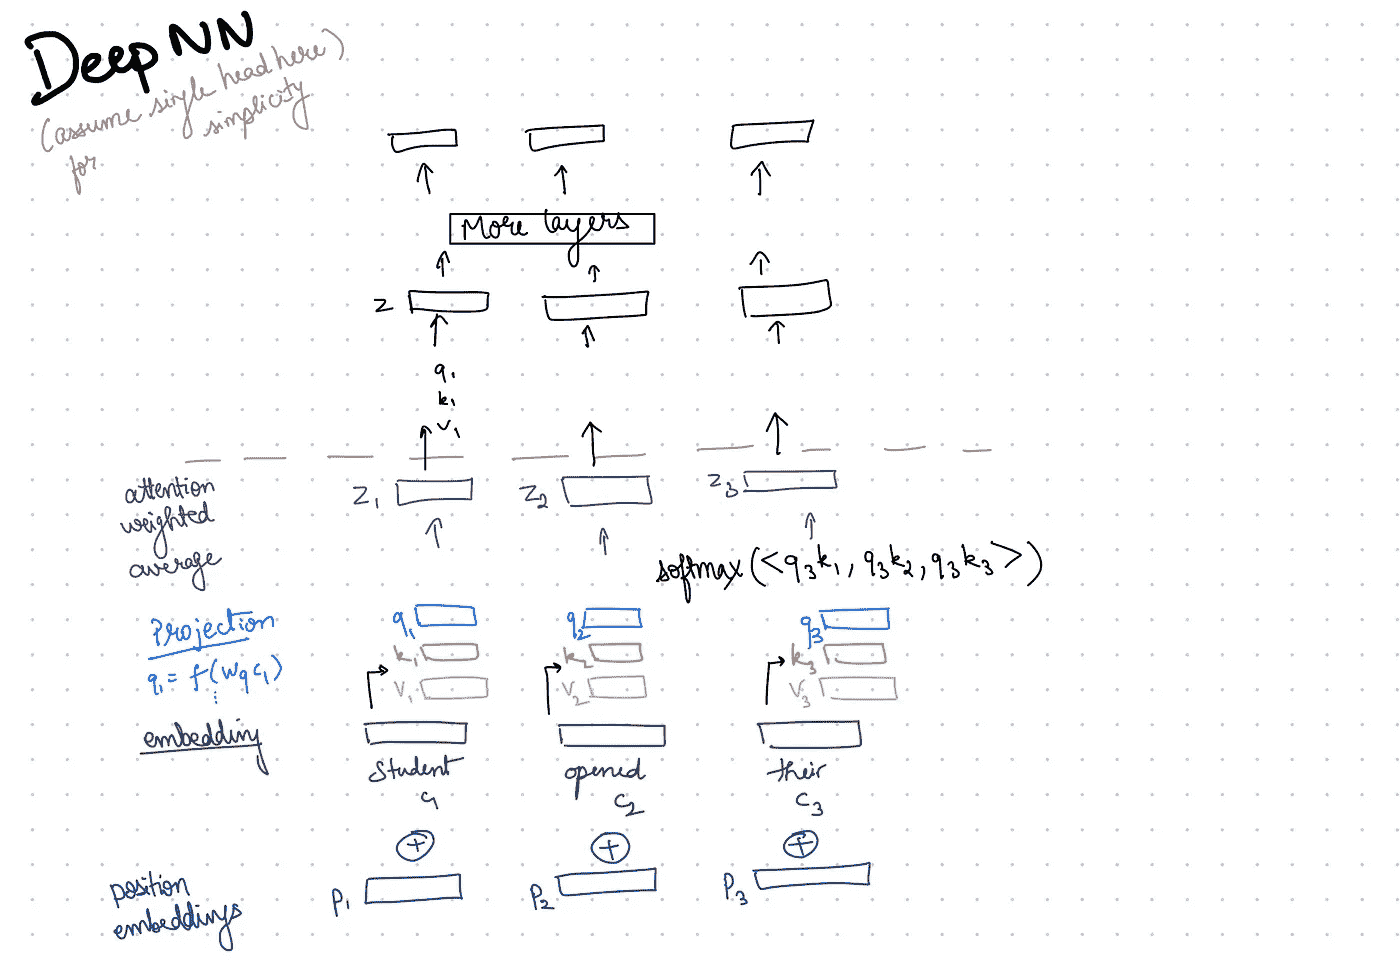 Deep NN
(assume single head here)
for simplicity
More layers
z
q₁
k₁
v₁
attention
weighted
average
z₁ z₂ z₃
softmax(<q₃k₁, q₃k₂, q₃k₃>)
Projection
q₁ = f(Wq c₁)
⋮
q₁ q₂ q₃
k₁ k₂ k₃
v₁ v₂ v₃
embedding
Student opened their
c₁ c₂ c₃
+ + +
position
embeddings
P₁ P₂ P₃